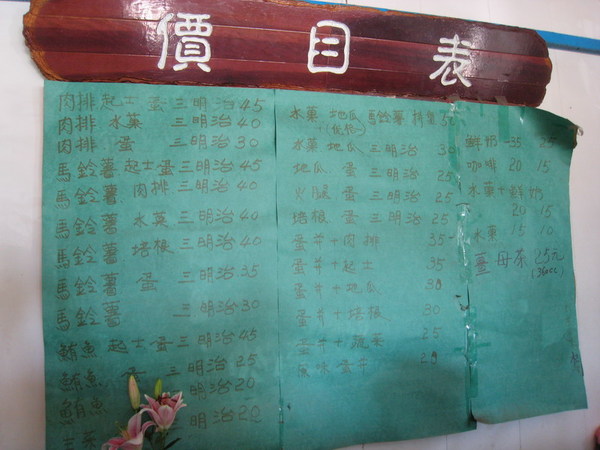 價目表
肉排起士蛋三明治45
肉排 水菓 三明治40
肉排 蛋 三明治30
馬鈴薯起士蛋三明治45
馬鈴薯 肉排 三明治40
馬鈴薯 水菓 三明治40
馬鈴薯 培根 三明治40
馬鈴薯 蛋 三明治35
馬鈴薯 三明治30
鮪魚 起士蛋三明治45
鮪魚 蛋 三明治25
鮪魚 明治20
明治20
水菓 地瓜 馬鈴薯
水菓 地瓜 三明治 30
地瓜 蛋 三明治 25
火腿 蛋 三明治 25
培根 蛋 三明治 25
蛋并+肉排 35
蛋并+起士 35
蛋并+地瓜 30
蛋并+培根 30
蛋并+蔬菜 25
原味蛋并 20
鮮奶 35 25
咖啡 20 15
水菓+鮮奶
20 15
水菓 15 10
薑母茶25元